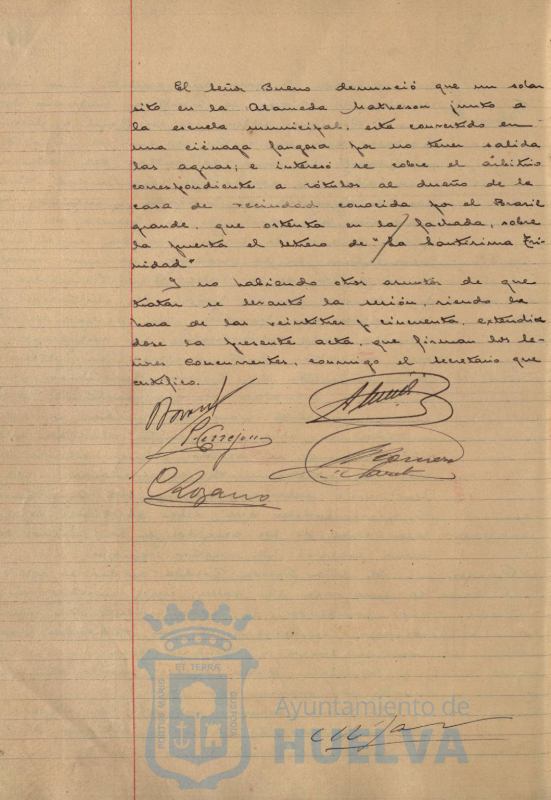 El Señor Bueno denunció que un solar
sito en la Alameda Matheson junto a
la escuela municipal, esta convertido en
una ciénaga fangosa por no tener salida
las aguas; e interesó se cobre el arbitrio
correspondiente a rótulos al dueño de la
casa de vecindad conocida por el Brasil
grande, que ostenta en la fachada, sobre
la puerta el letrero de "La Santísima Tri-
nidad"
Y no habiendo otros asuntos de que
tratar se levantó la sesión, siendo la
hora de las veintitres y cincuenta, extendien
dose la presente acta, que firman los Se-
ñores Concurrentes, conmigo el Secretario que
certifico.
P. Terrejon
Romero
C Rozano
ET TERRÆ
PORTUS MARIS
CUSTODIA
Ayuntamiento de
HUELVA